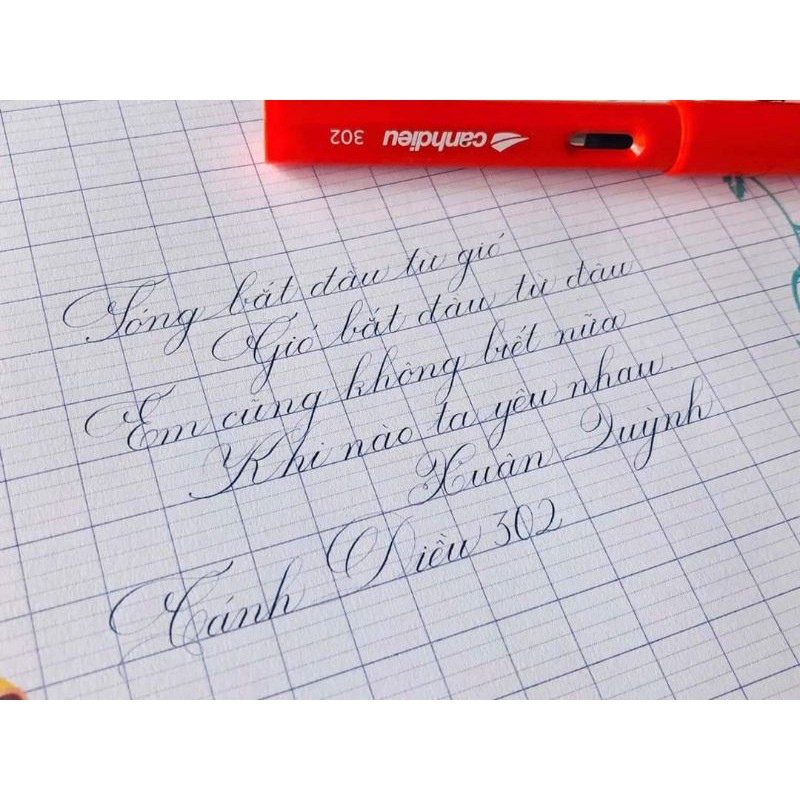 canhdieu 302
Sóng bắt đầu từ gió
Gió bắt đầu từ đâu
Em cũng không biết nữa
Khi nào ta yêu nhau
Xuân Quỳnh
Cánh Diều 302